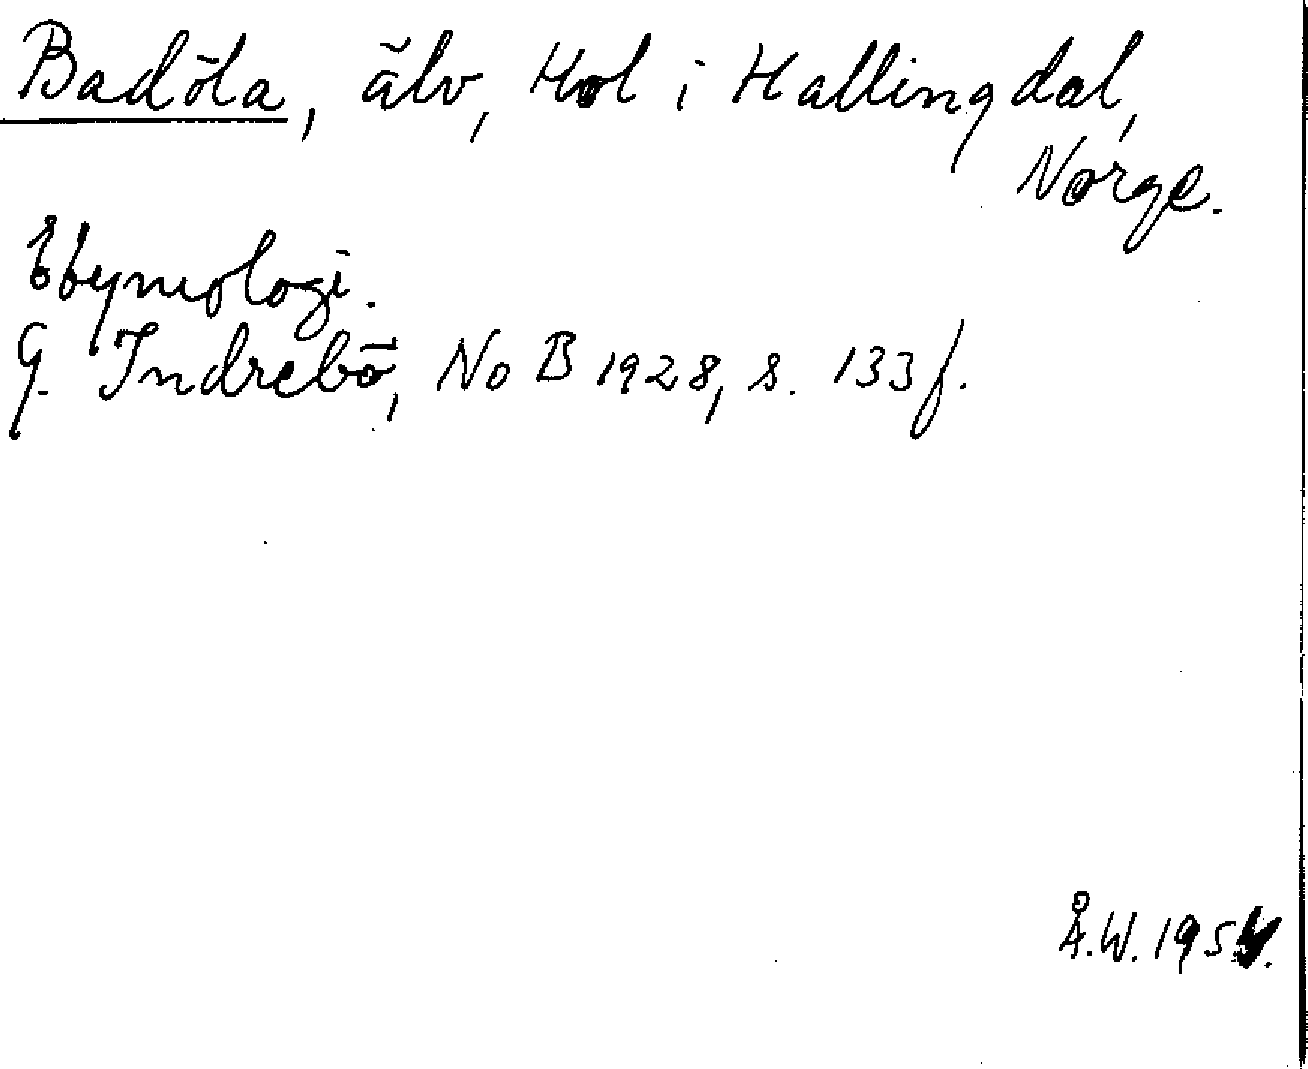 Badöla, älv, Hol i Hallingdal,
Norge.
Etymologi.
G. Indrebö, NoB 1928, s. 133 f.
Å.W. 1954.